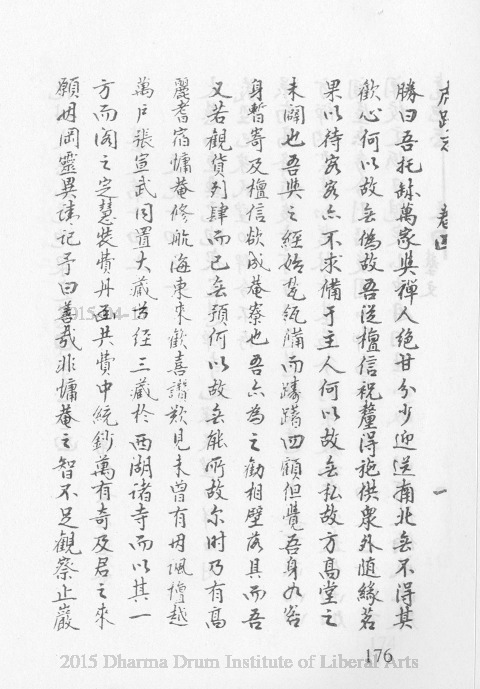 勝曰吾托缽萬家與禪人絕甘分少迎送南北無不得其
歡心何以故無偽故吾從檀信祝釐得施供眾外隨緣茗
果以待客客亦不求備于主人何以故無私故方高堂之
未闢也吾與之經始瓦瓴備而躊躇四顧但覺吾身如客
身暫寄及檀信欲成菴寮也吾亦為之勸相壁落具而吾
又若觀貨列肆而已無預何以故無能所故尔時乃有高
麗耆宿慵菴修航海東來歡喜讚歎見未曾有毋諷檀越
萬戶張宣武同置大藏尊經三藏於西湖諸寺而以其一
方而閣之定慧裝費丹堊共費中統鈔萬有奇及君之來
願毋岡靈異請記予曰善哉非慵菴之智不足觀察止巖
卷四
一
176
2015 Dharma Drum Institute of Liberal Arts